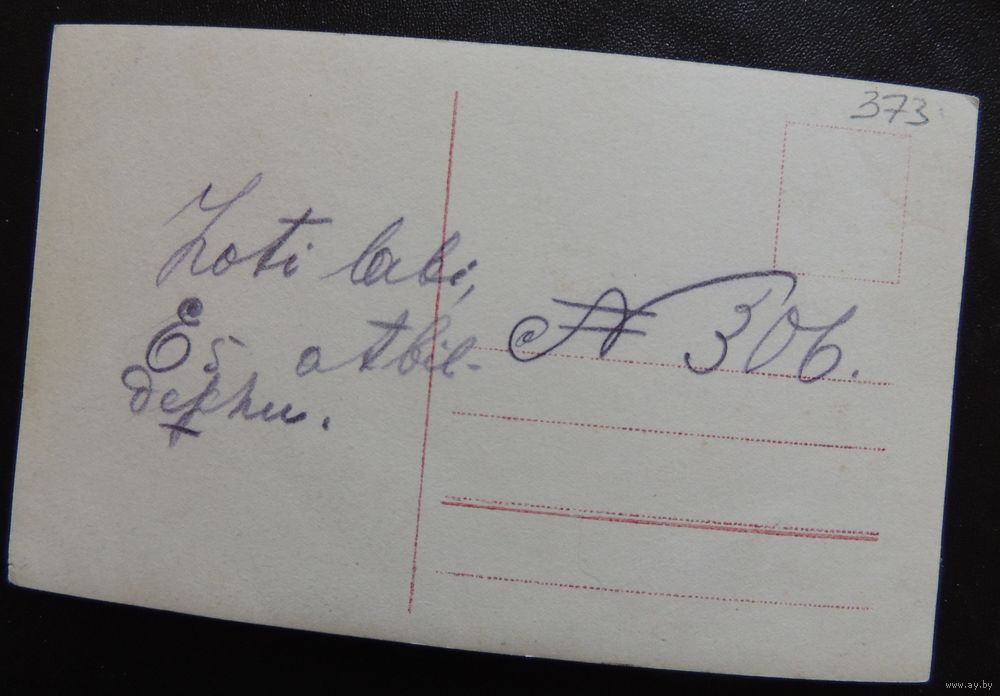 373
Loti labi,
Es atbil-
deſchu.
№ 306.
www.ay.by